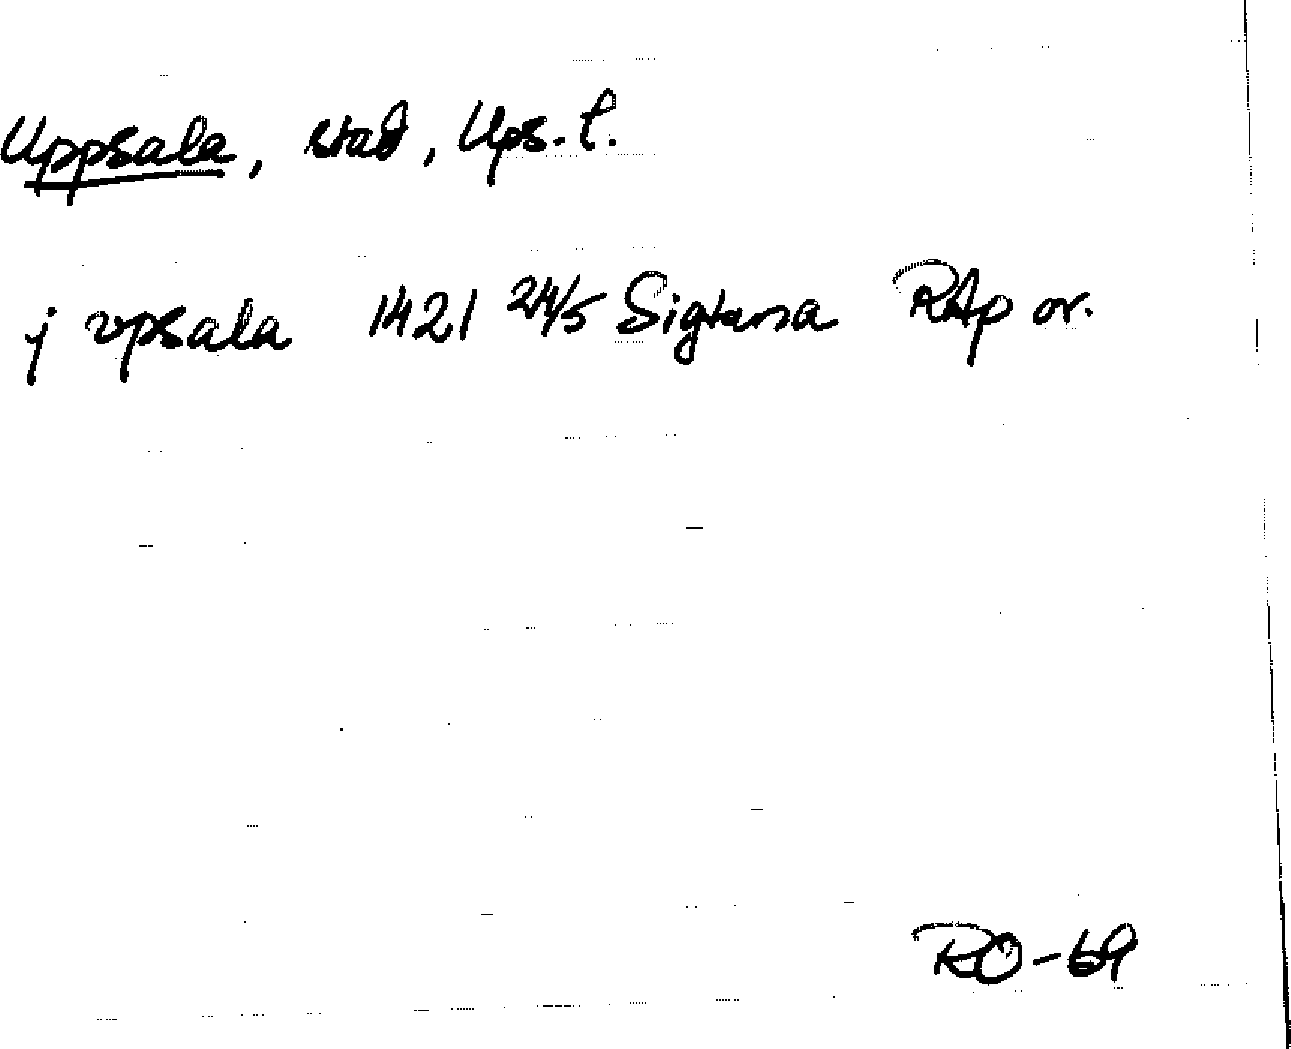 Uppsala, stad, Ups. l.
j vpsala 1421 24/5 Sigtuna RAp or.
RO-69